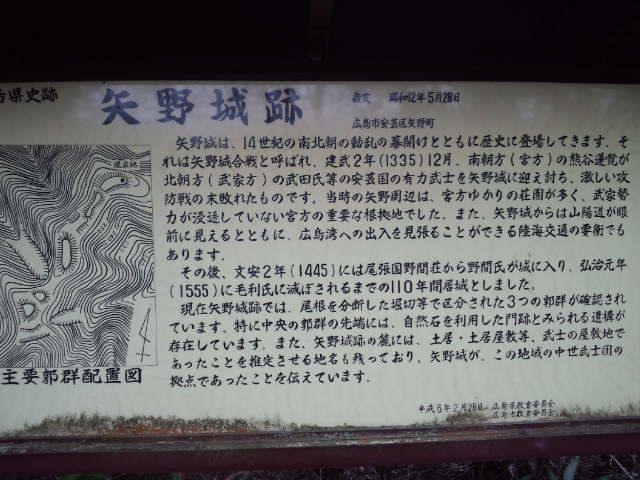 県史跡
矢野城跡
指定 昭和12年5月28日
広島市安芸区矢野町
矢野城は、14世紀の南北朝の動乱の幕開けとともに歴史に登場してきます。そ
れは矢野城合戦と呼ばれ、建武2年(1335)12月、南朝方(宮方)の熊谷蓮覚が
北朝方(武家方)の武田氏等の安芸国の有力武士を矢野城に迎え討ち、激しい攻
防戦の末敗れたものです。当時の矢野周辺は、宮方ゆかりの荘園が多く、武家勢
力が浸透していない宮方の重要な根拠地でした。また、矢野城からは山陽道が眼
前に見えるとともに、広島湾への出入を見張ることができる陸海交通の要衝でも
あります。
その後、文安2年(1445)には尾張国野間荘から野間氏が城に入り、弘治元年
(1555)に毛利氏に滅ぼされるまでの110年間居城としました。
現在矢野城跡では、尾根を分断した堀切等で区分された3つの郭群が確認され
ています。特に中央の郭群の先端には、自然石を利用した門跡とみられる遺構が
存在しています。また、矢野城跡の麓には、土居・土居屋敷等、武士の屋敷地で
あったことを推定させる地名も残っており、矢野城が、この地域の中世武士団の
拠点であったことを伝えています。
平成6年2月28日 広島県教育委員会
広島市教育委員会
現在地
主要郭群配置図